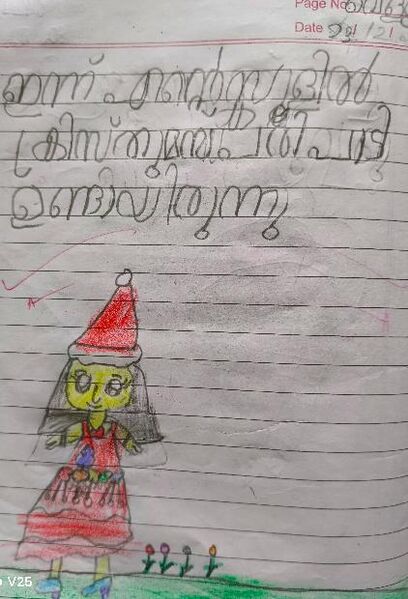 Page No
Date
ഇന്ന് എന്റെ സ്കൂളിൽ
ക്രിസ്തുമസ് പരിപാടി
ഉണ്ടായിരുന്നു
V25